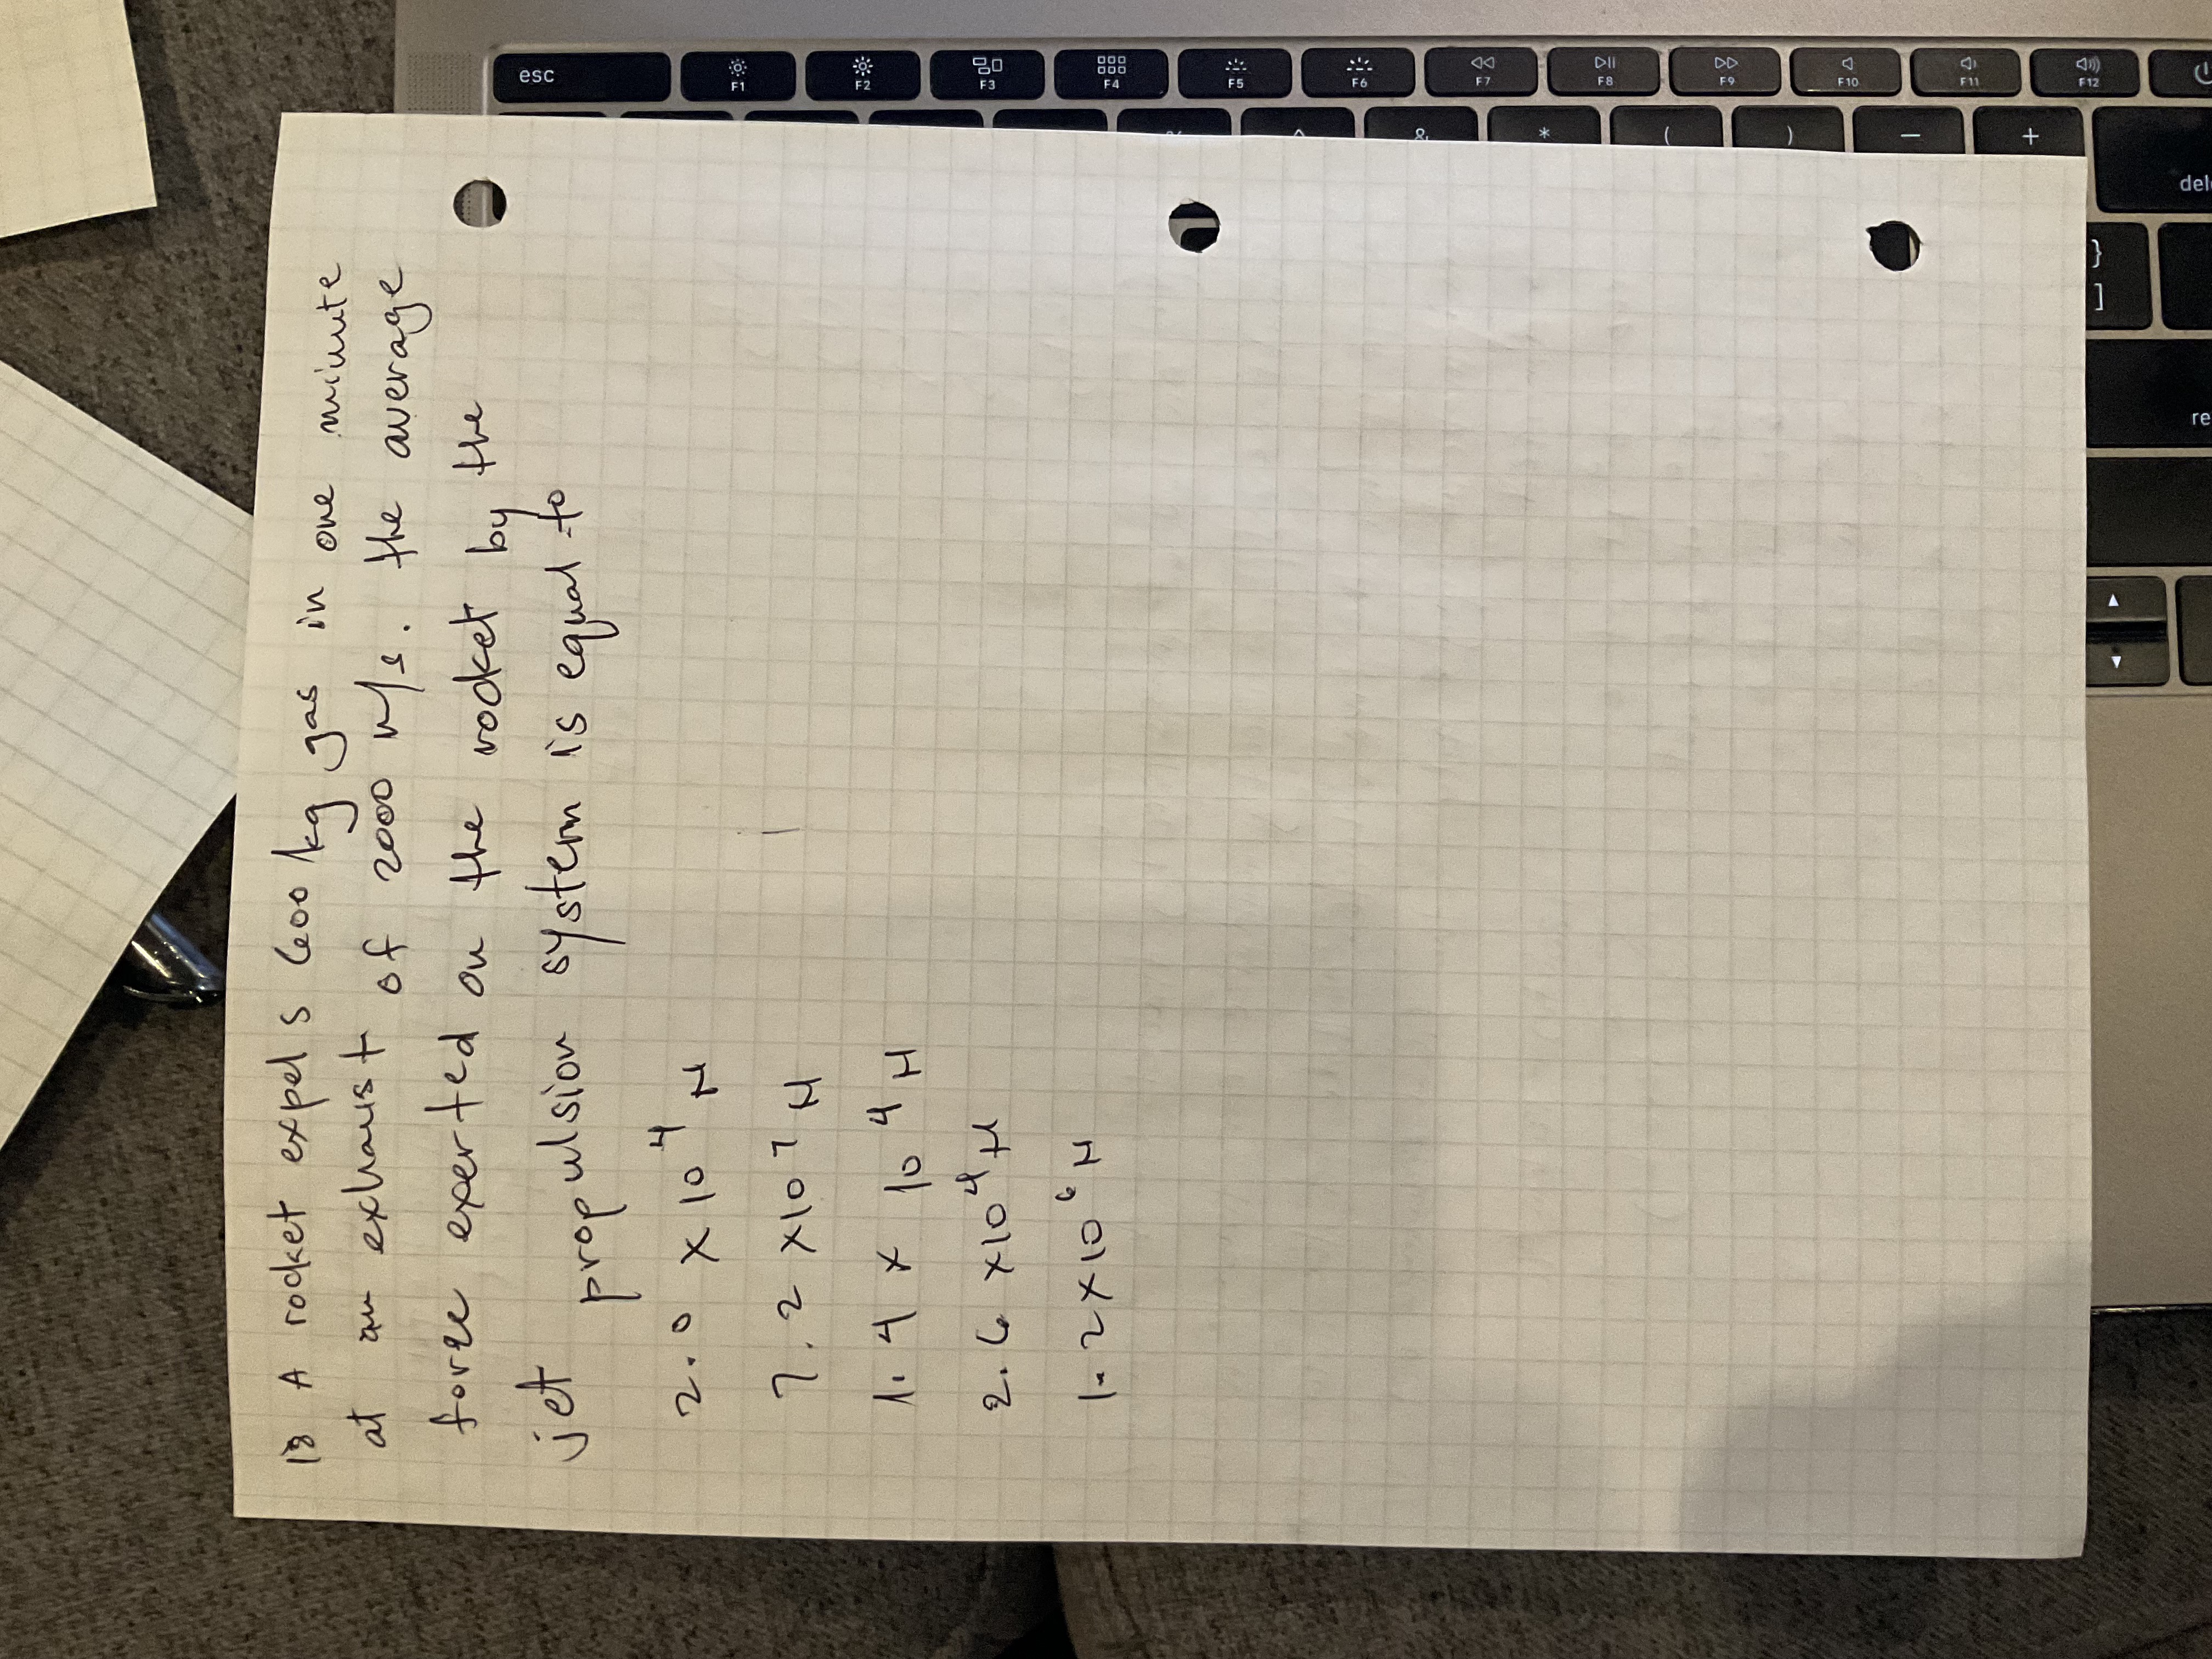 18 A rocket expels 600 kg gas in one minute
at an exhaust of 2000 m/s. the average
force experted on the rocket by the
jet propulsion system is equal to
2.0 x 10⁴ H
7.2 x 10⁷ H
1.4 x 10⁴ H
2.6 x 10⁴ H
1.2 x 10⁶ H
esc
F1
F2
F3
F4
F5
F6
F7
F8
F9
F10
F11
F12
% ^ & * ( ) — +
}
]